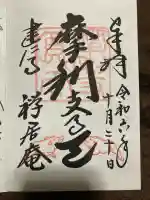 奉拝
令和六年
十月二十日
摩利支天
建仁寺
禅居庵